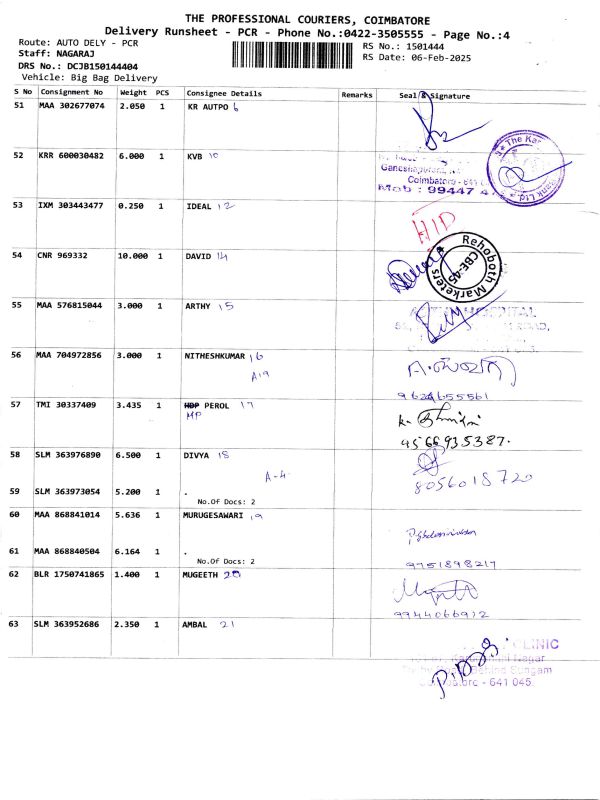 THE PROFESSIONAL COURIERS, COIMBATORE
Delivery Runsheet - PCR - Phone No.:0422-3505555 - Page No.:4
Route: AUTO DELY - PCR
RS No.: 1501444
Staff: NAGARAJ
RS Date: 06-Feb-2025
DRS No.: DCJB150144404
Vehicle: Big Bag Delivery
S No Consignment No Weight PCS Consignee Details Remarks Seal & Signature
51 MAA 302677074 2.050 1 KR AUTPO 6
52 KRR 600030482 6.000 1 KVB 10
The Kar
Bank Ltd
Coimbatore - 641
Mob : 99447 4
53 IXM 303443477 0.250 1 IDEAL 12
HID
54 CNR 969332 10.000 1 DAVID 14
Rehoboth Marketers
CBE-45
55 MAA 576815044 3.000 1 ARTHY 15
56 MAA 704972856 3.000 1 NITHESHKUMAR 16
A19
9624655561
57 TMI 30337409 3.435 1 HDP PEROL 17
MP
9566935387.
58 SLM 363976890 6.500 1 DIVYA 18
A-4
8056018720
59 SLM 363973054 5.200 1 .
No.Of Docs: 2
60 MAA 868841014 5.636 1 MURUGESAWARI 19
61 MAA 868840504 6.164 1 .
No.Of Docs: 2
9751898217
62 BLR 1750741865 1.400 1 MUGEETH 20
9944066912
63 SLM 363952686 2.350 1 AMBAL 21
CLINIC
Nagar
Behind Sungam
- 641 045